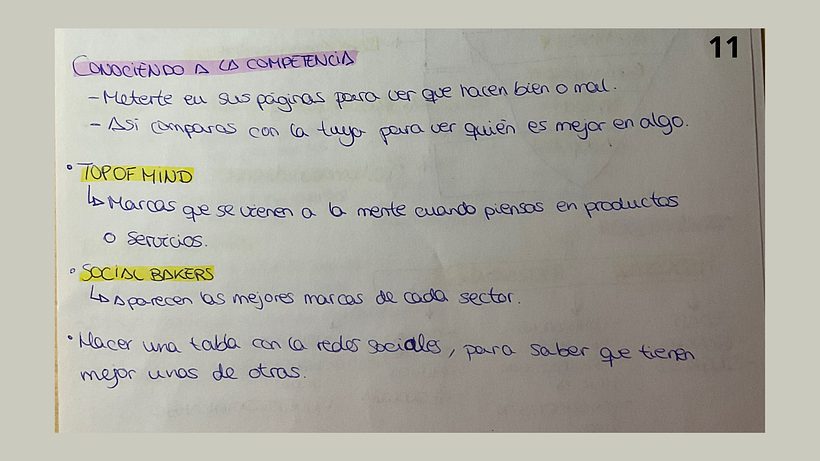 11
CONOCIENDO A LA COMPETENCIA
- Meterte en sus páginas para ver que hacen bien o mal.
- Así comparas con la tuya para ver quién es mejor en algo.
• TOP OF MIND
↳ Marcas que se vienen a la mente cuando piensas en productos
o servicios.
• SOCIAL BAKERS
↳ Aparecen las mejores marcas de cada sector.
• Hacer una tabla con la redes sociales, para saber que tienen
mejor unas de otras.